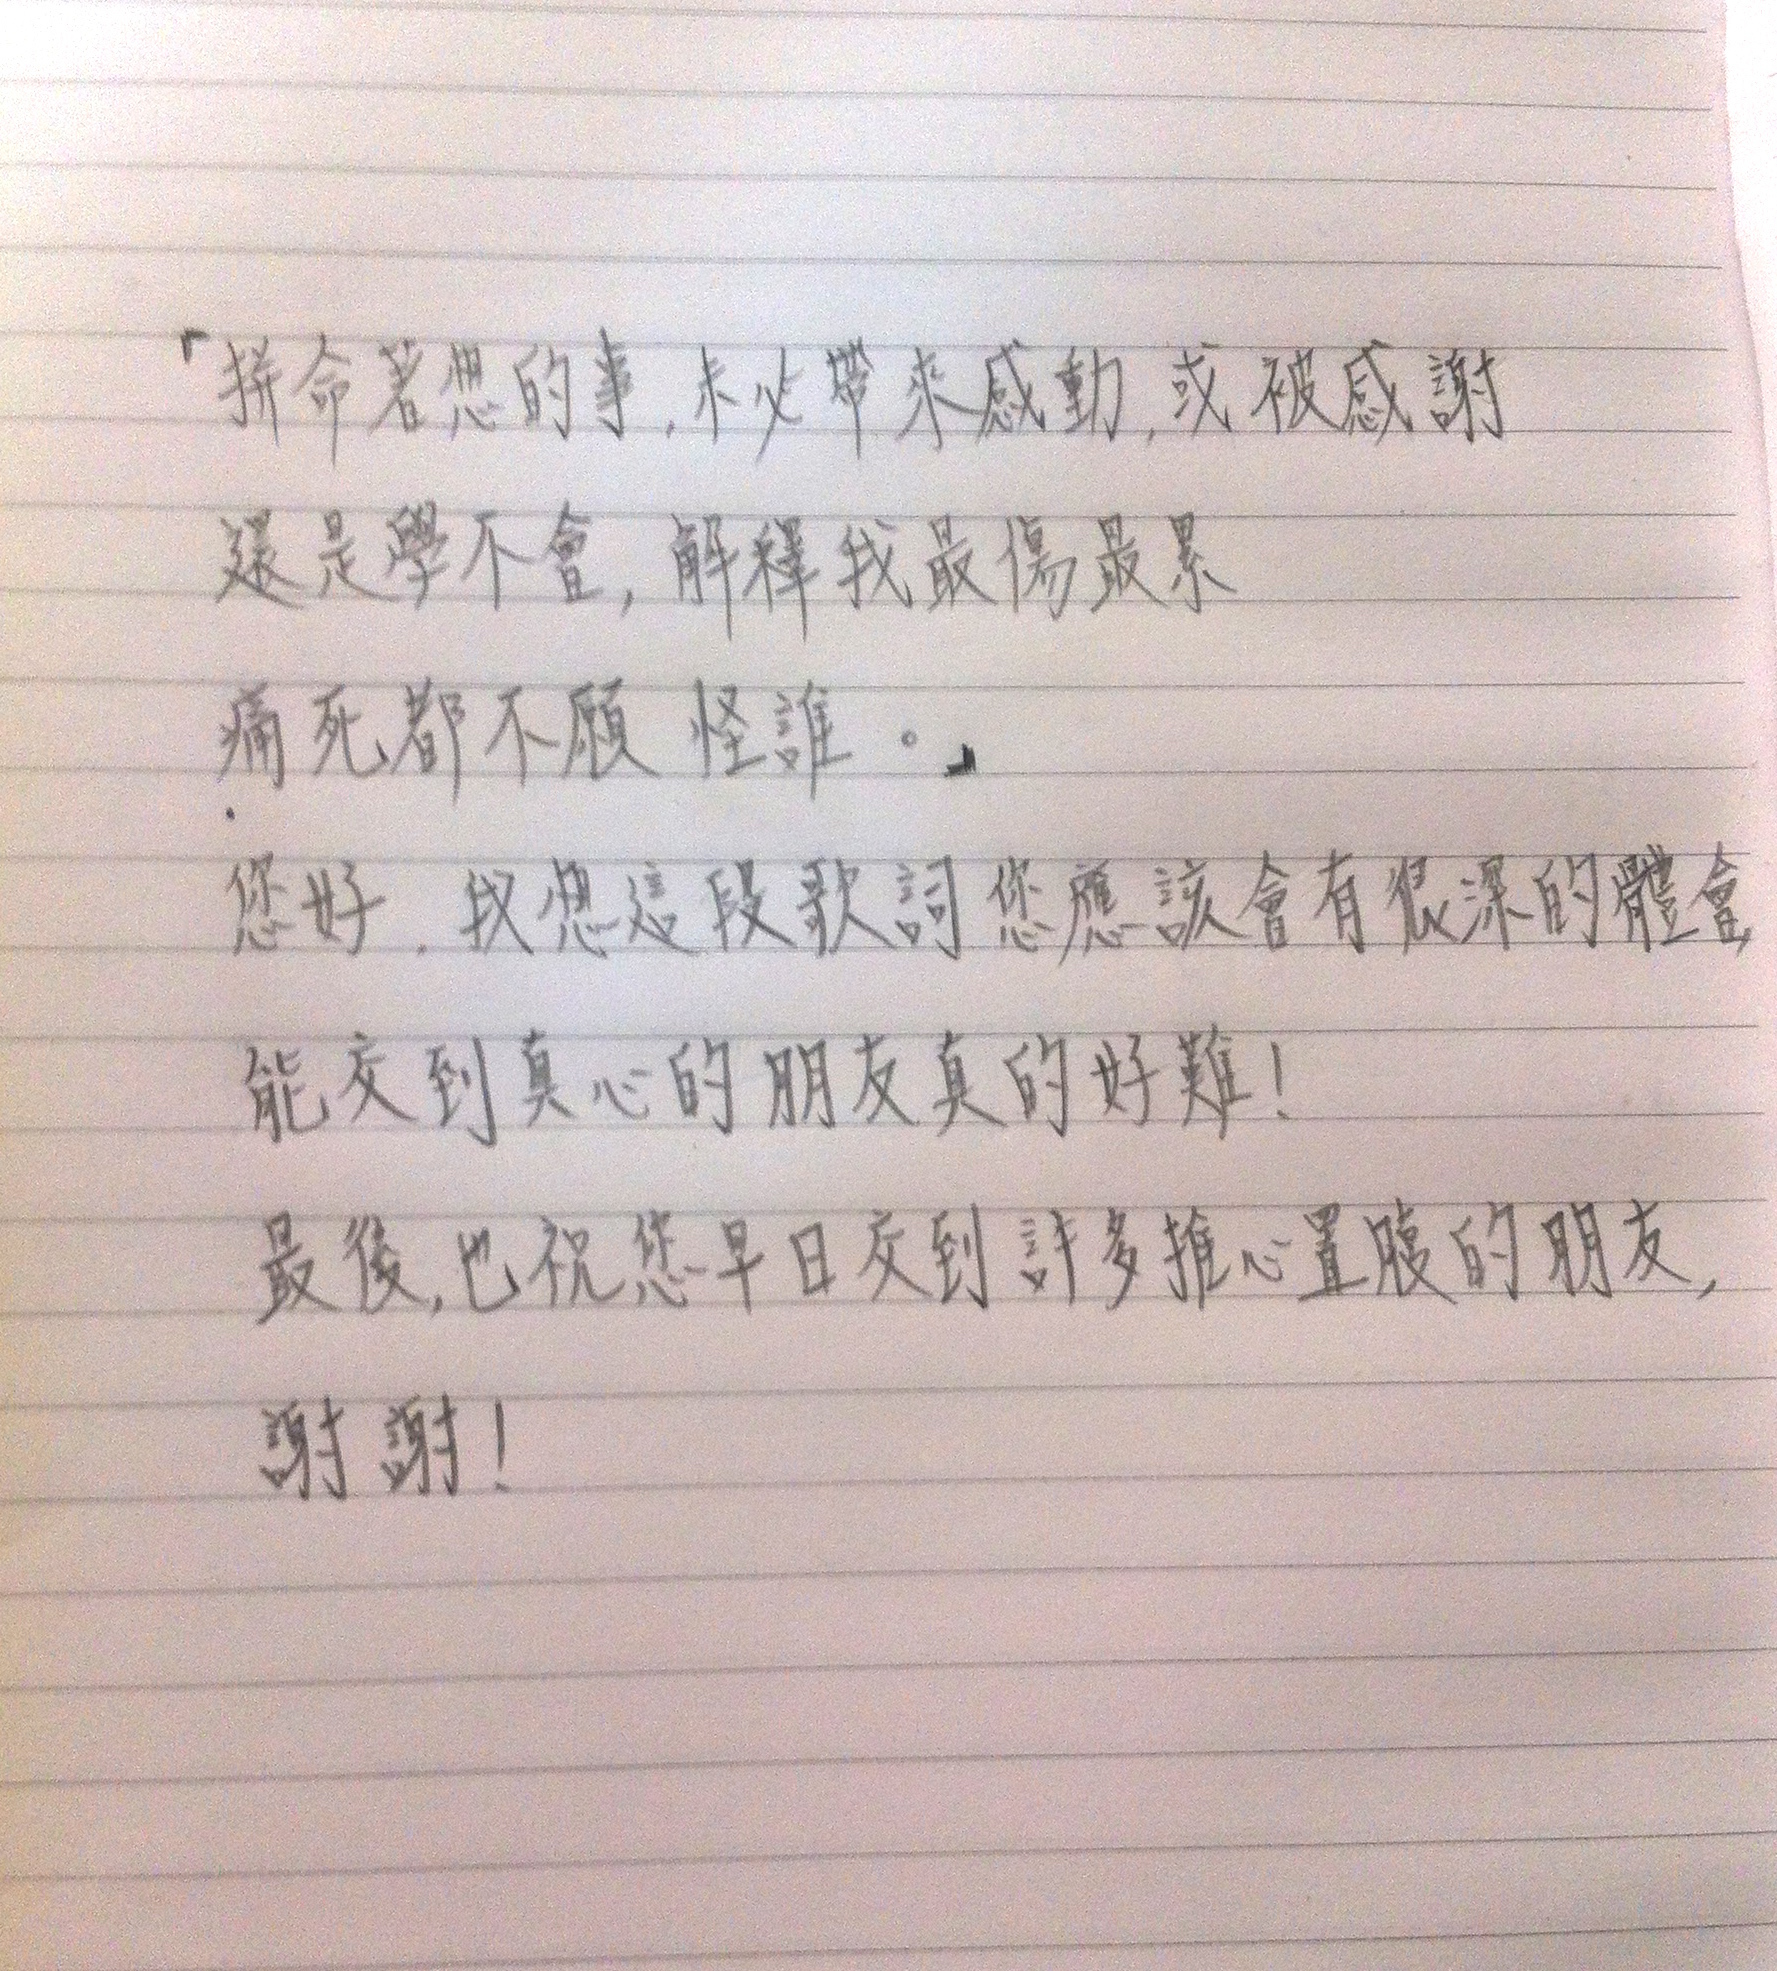 「拼命著想的事,未必帶來感動,或被感謝
還是學不會,解釋我最傷最累
痛死都不願怪誰。」
您好,我想這段歌詞您應該會有很深的體會,
能交到真心的朋友真的好難!
最後,也祝您早日交到許多推心置腹的朋友,
謝謝!